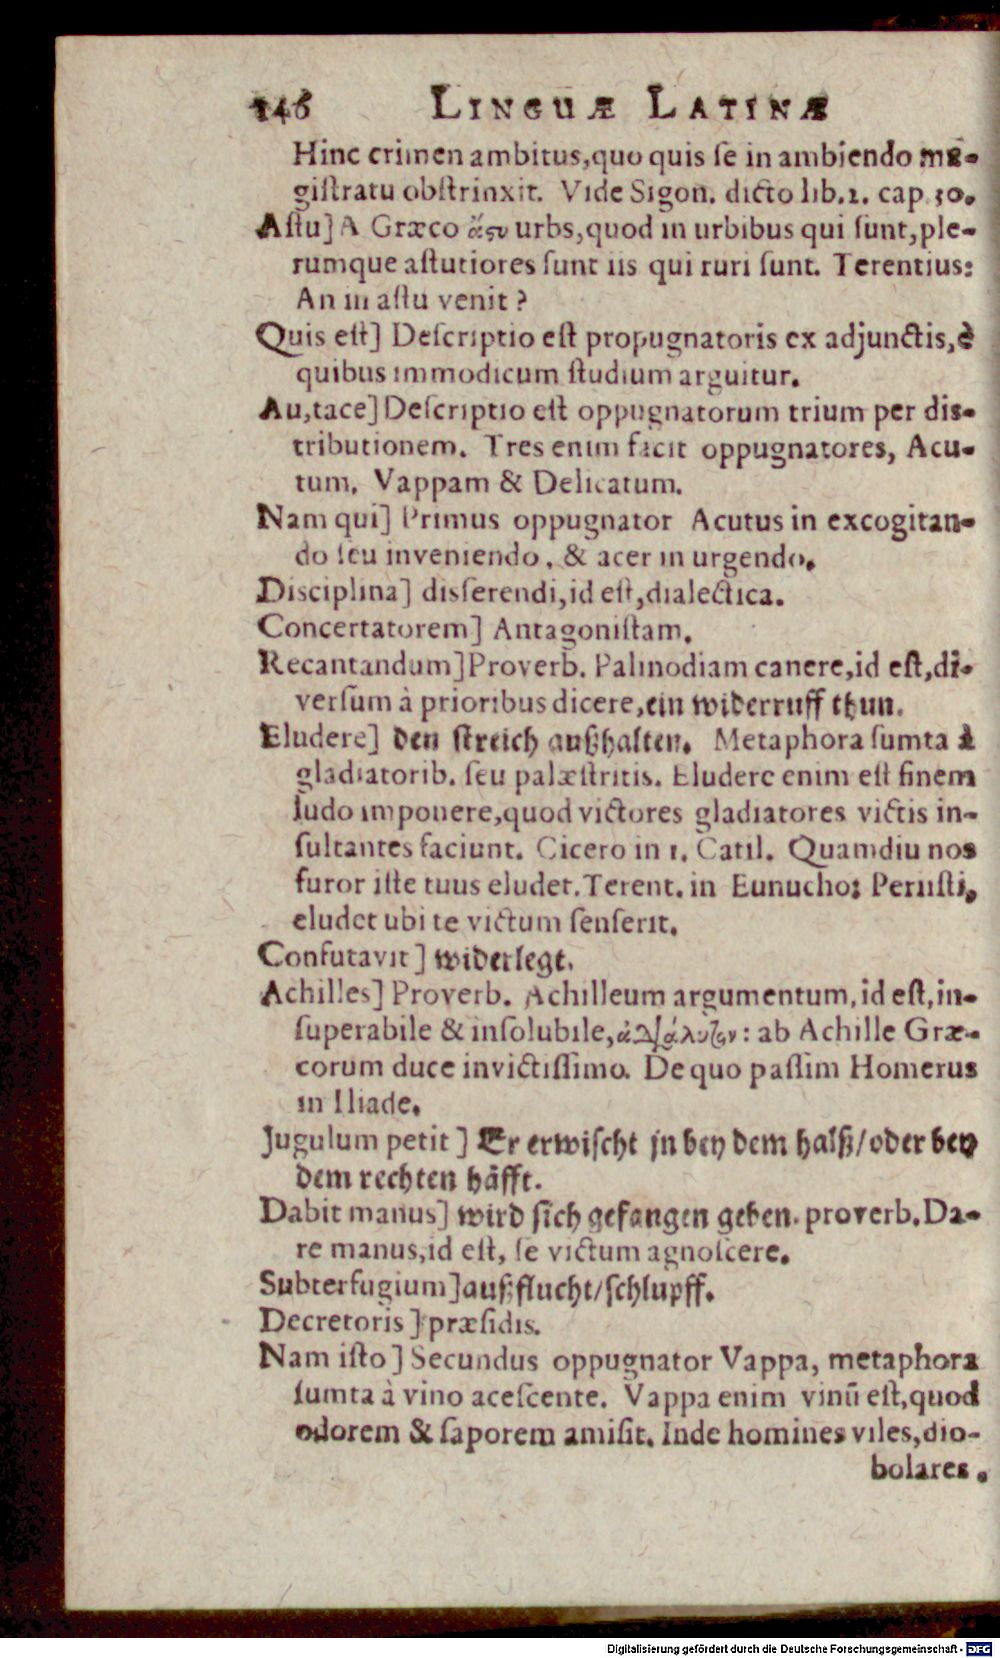 146 LINGUÆ LATINÆ
Hinc crimen ambitus, quo quis ſe in ambiendo ma-
giſtratu obſtrinxit. Vide Sigon. dicto lib. 1. cap. 30.
Aſtu] A Græco ἄϛυ urbs, quod in urbibus qui ſunt, ple-
rumque aſtutiores ſunt iis qui ruri ſunt. Terentius:
An in aſtu venit?
Quis eſt] Deſcriptio eſt propugnatoris ex adjunctis, è
quibus immodicum ſtudium arguitur.
Au, tace] Deſcriptio eſt oppugnatorum trium per dis-
tributionem. Tres enim facit oppugnatores, Acu-
tum, Vappam & Delicatum.
Nam qui] Primus oppugnator Acutus in excogitan-
do ſeu inveniendo, & acer in urgendo.
Disciplina] disſerendi, id eſt, dialectica.
Concertatorem] Antagoniſtam.
Recantandum] Proverb. Palinodiam canere, id eſt, di-
verſum à prioribus dicere, ein widerruff thun.
Eludere] den ſtreich außhalten. Metaphora ſumta à
gladiatorib. ſeu palæſtritis. Eludere enim eſt finem
ludo imponere, quod victores gladiatores victis in-
ſultantes faciunt. Cicero in 1. Catil. Quamdiu nos
furor iſte tuus eludet. Terent. in Eunucho: Periiſti,
eludet ubi te victum ſenſerit.
Confutavit] widerlegt.
Achilles] Proverb. Achilleum argumentum, id eſt, in-
ſuperabile & inſolubile, : ab Achille Græ-
corum duce invictiſſimo. De quo paſſim Homerus
in Iliade.
Jugulum petit] Er erwiſcht jn bey dem halß/ oder bey
dem rechten häfft.
Dabit manus] wird ſich gefangen geben. proverb. Da-
re manus, id eſt, ſe victum agnoſcere.
Subterfugium] außflucht/ ſchlupff.
Decretoris] præſidis.
Nam iſto] Secundus oppugnator Vappa, metaphora
ſumta à vino aceſcente. Vappa enim vinū eſt, quod
odorem & ſaporem amiſit. Inde homines viles, dio-
bolares.
Digitalisierung gefördert durch die Deutsche Forschungsgemeinschaft - DFG